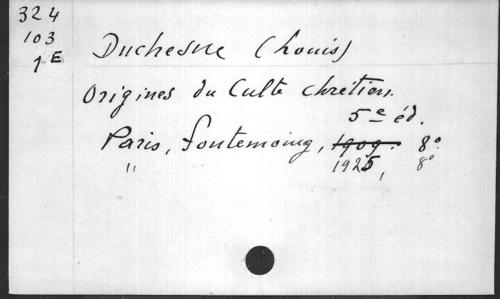 324
103
1E
Duchesne (Louis)
Origines du Culte chrétien.
5e éd.
Paris, Fontemoing, 1909. 8°.
" 1925, 8°